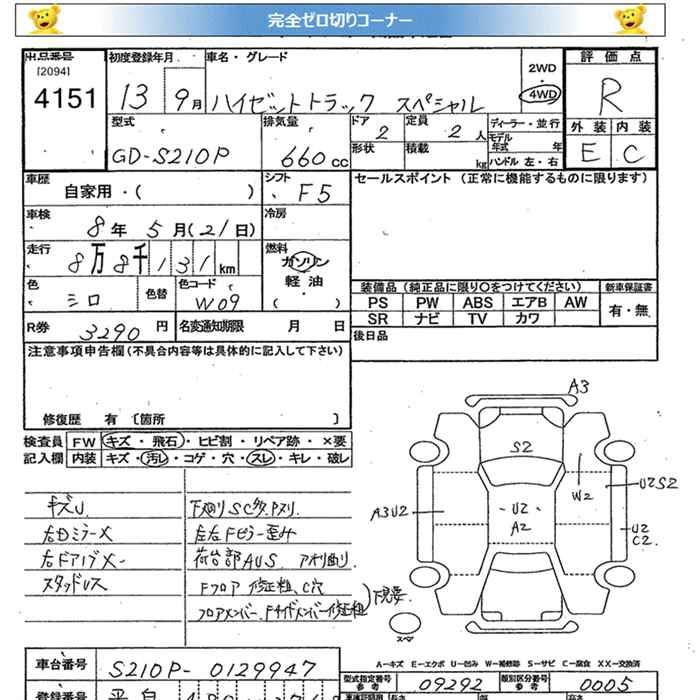 完全ゼロ切りコーナー
出品番号 初度登録年月 車名・グレード 評価点
[2094]
4151 13 9月 ハイゼットトラック スペシャル 2WD 4WD R
型式 排気量 ドア 定員 ディーラー・並行 外装 内装
GD-S210P 660cc 2 2人 モデル年式 年 E C
形状 積載 kg ハンドル 左・右
車歴 シフト セールスポイント (正常に機能するものに限ります)
自家用・( ) F5
車検 8年5月(21日) 冷房
走行 8万8千131km 燃料
ガソリン
軽油
( )
色 シロ 色替 色コード W09
装備品 (純正品に限り○をつけてください) 新車保証書
PS PW ABS エアB AW 有・無
SR ナビ TV カワ
R券 3290円 名変通知期限 月 日 後日品
注意事項申告欄 (不具合内容等は具体的に記入して下さい)
修復歴 有 〔箇所 〕
検査員 FW キズ・飛石・ヒビ割・リペア跡・×要
記入欄 内装 キズ・汚レ・コゲ・穴・スレ・キレ・破レ
キズU 下廻りSC多.Pスリ
右Dミラー× 左右Fピラー歪み
右ドアバグ×
荷台部AUS アオリ曲り
スタッドレス Fフロア 修正粗、C穴
フロアメンバー、Fサイドメンバー修正粗 下見要
A3
S2
A3U2
U2
A2
W2
U2S2
U2
C2
スペア
A－キズ E－エクボ U－凹み W－補修跡 S－サビ C－腐食 XX－交換済
車台番号 S210P-0129947
型式指定番号 参考 09292 類別区分番号 参考 0005
登録番号